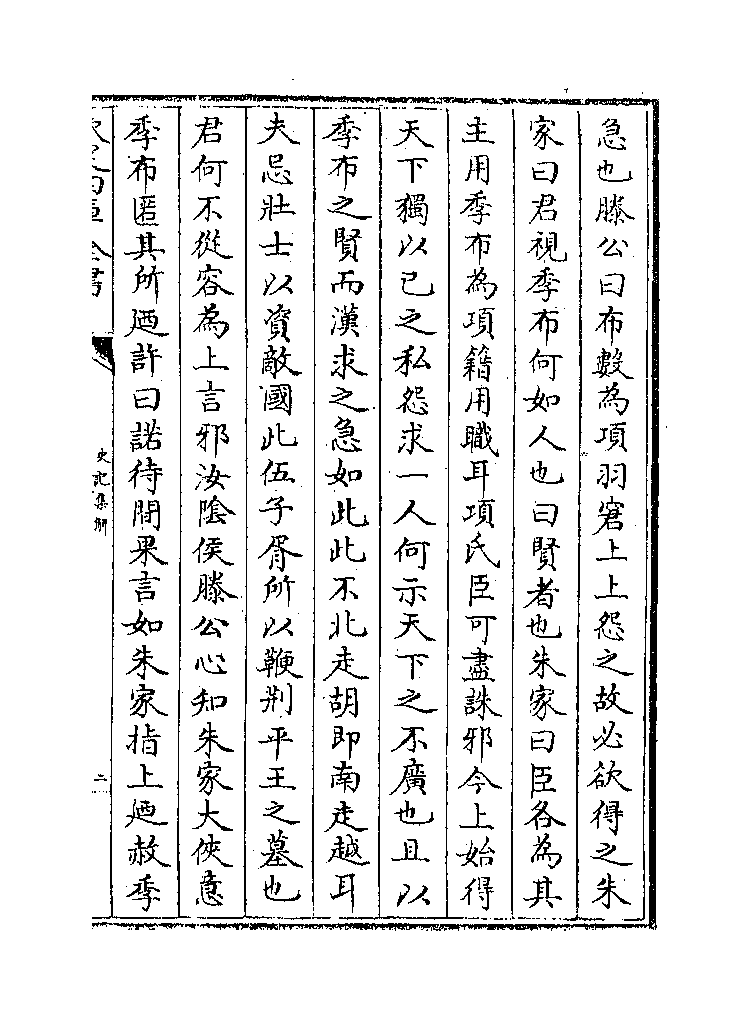 急也滕公曰布數為項羽窘上上怨之故必欲得之朱
家曰君視季布何如人也曰賢者也朱家曰臣各為其
主用季布為項籍用職耳項氏臣可盡誅邪今上始得
天下獨以已之私怨求一人何示天下之不廣也且以
季布之賢而漢求之急如此此不北走胡即南走越耳
夫忌壯士以資敵國此伍子胥所以鞭荆平王之墓也
君何不從容為上言邪汝陰侯滕公心知朱家大俠意
季布匿其所廼許曰諾待間果言如朱家指上廼赦季
史記集解
二